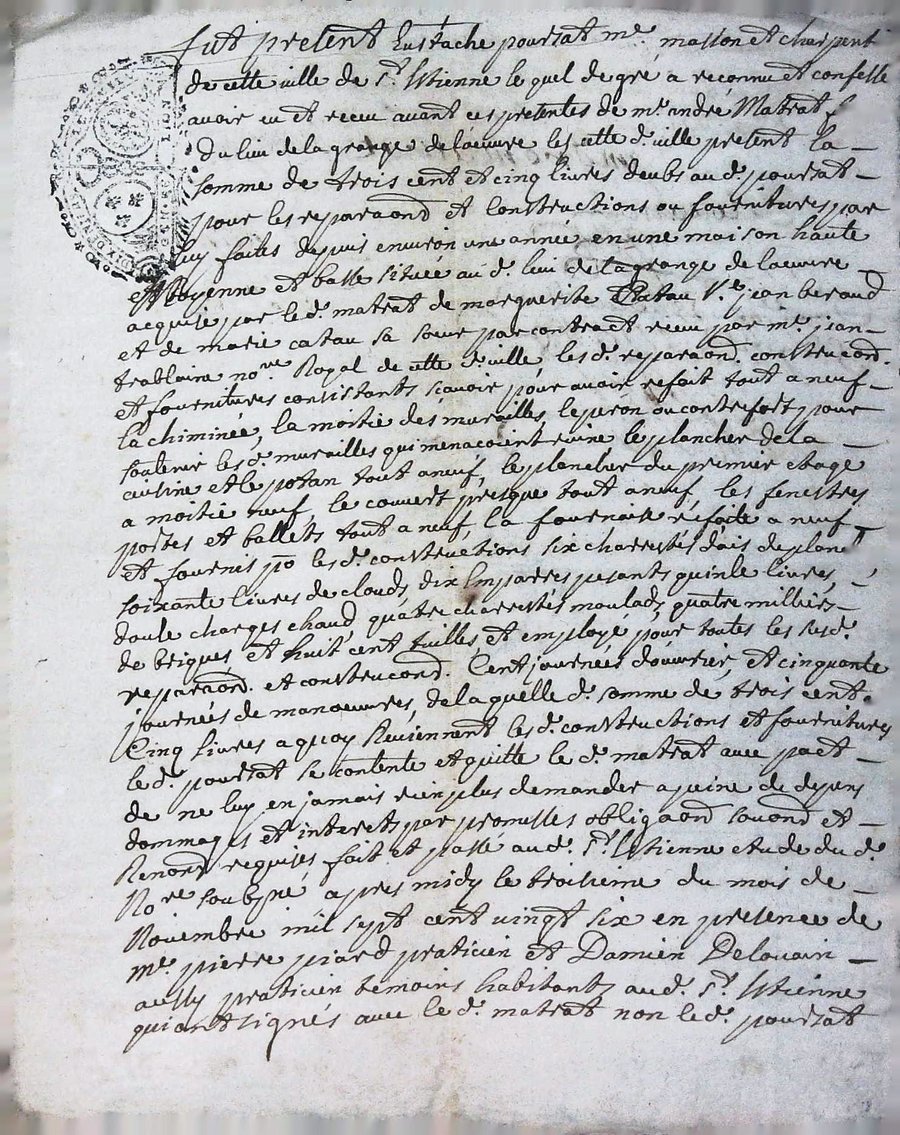 fut present Eustache poursat me. masson et charpent
de cette ville de st. Estienne lequel de gré a reconnu et confessé
avoir eu et receu avant ces presentes de mr. andré Matrat f
du lieu de la grange de loeuvre les cette d. ville present la —
somme de trois cent et cinq livres deubs au d. poursat —
pour les reparaond et constructions ou fournitures par
luy faites depuis environ une année en une maison haute
et moyenne et basse située au d. lieu de la grange de loeuvre
acquise par le d. matrat de marguerite Catau Ve. jean beraud
et de marie catau sa soeur par contract receu par me. jean —
trablaine nore. Royal de cette d. ville, les d. reparaond. construcond.
et fournitures consistants scavoir pour avoir refait tout a neuf —
la chiminée, la moitié des murailles, le peron ou contrefort pour
soutenir les d. murailles qui menacoient ruine le plancher de la —
cuisine et le potan tout a neuf, le plancher du premier etage
a moitié neuf, le couvert presque tout a neuf, les fenestres
portes et ballets tout a neuf, la fournaise refaite a neuf —
et fournis po les d. constructions six charrettés d'ais de plane
soixante livres de clouds, dix Emparres pesants quinse livres, —
douse charges chaud, quatre charrettés moulads, quatre milliers —
de briques et huit cent tuilles et employé pour toutes les sesd.
reparaond. et construcond. Cent journées d'ouvrier, et cinquante
journées de manoeuvres, de laquelle d. somme de trois cent
Cinq livres a quoy Reviennent les d. constructions et fournitures
le d. poursat se contente et quitte le d. matrat avec pact —
de ne luy en jamais rien plus demander a peine de depens
dommages et interets par promesses obligaond souond et —
Renond requises fait et passé au d. st. Estienne etude du d.
Nore soubsné apres midy le troisieme du mois de —
Novembre mil sept cent vingt six en presence de
me. pierre piard praticien et Damien Delouain —
aussy praticien temoins habitants au d. st. Estienne
qui ont signés avec le d. matrat non le d. poursat